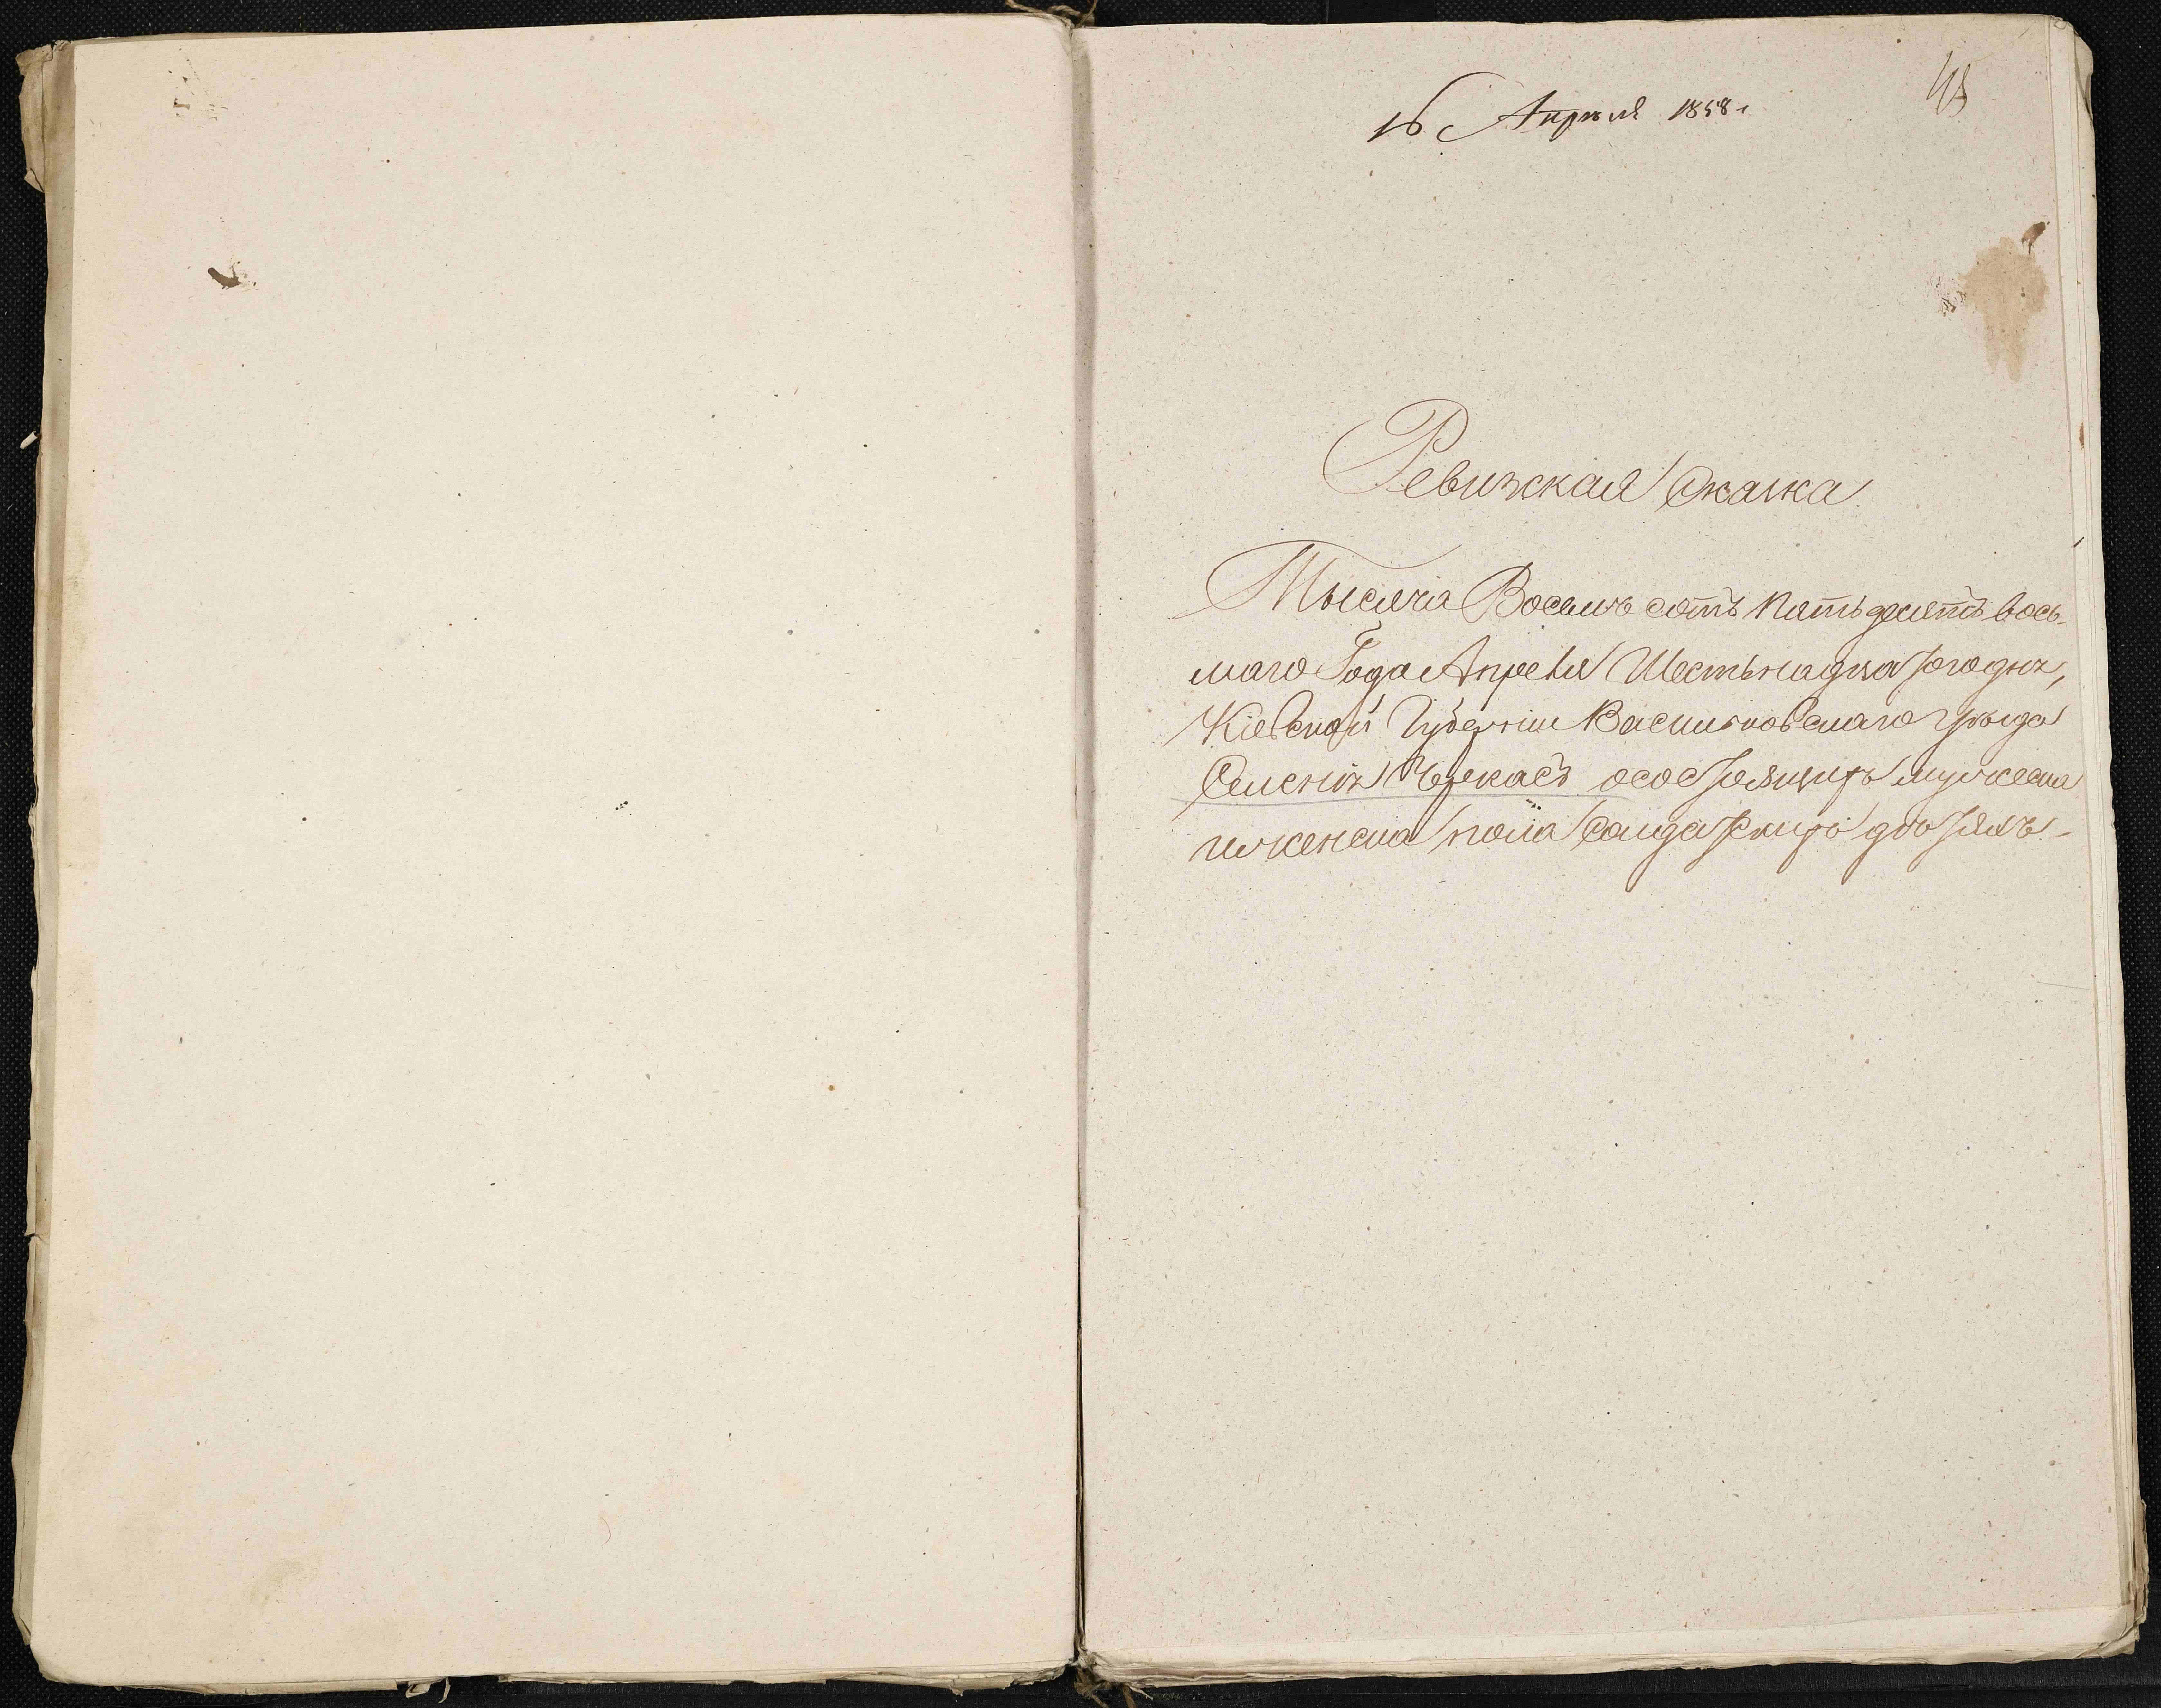 45
16 Апреля 1858 г
Ревизская Сказка
Тысяча Восемь сотъ Пятьдесятъ вось-
маго Года Апреля Шестьнадцатогодня,
Кіевской Губерніи Васильковскаго Уѣзда
Селенія Черкасъ осостоящихъ мужеска
иженска пола Солдатскихъ дѣтяхъ